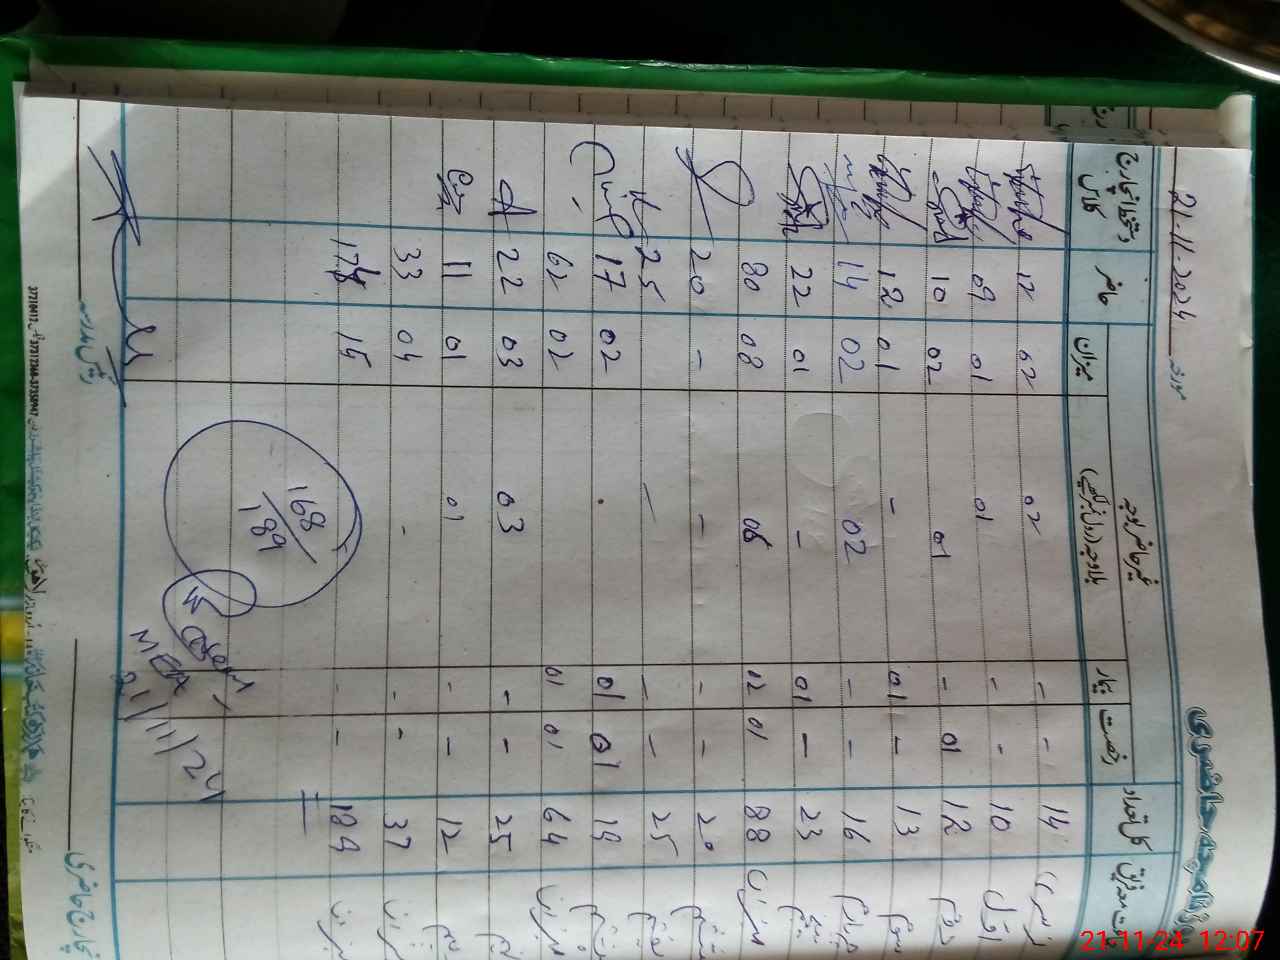 روزنامچہ حاضری
مورخہ 21-11-2024
جماعت معہ فریق | کل تعداد | رخصت | بیمار | غیر حاضر بوجہ | میزان | حاضر | دستخط انچارج کلاس
نرسری | 14 | - | - | 02 | 02 | 12
اول | 10 | - | - | 01 | 01 | 09
دوئم | 12 | 01 | - | 01 | 02 | 10
سوئم | 13 | - | 01 | - | 01 | 12
چہارم | 16 | - | - | 02 | 02 | 14
پنجم | 23 | - | 01 | - | 01 | 22
میزان | 88 | 01 | 02 | 06 | 08 | 80
ششم | 20 | - | - | - | - | 20
ہفتم | 25 | - | - | - | 25
ہشتم | 19 | 01 | 01 | 02 | 17
میزان | 64 | 01 | 01 | 02 | 62
نہم | 25 | - | - | 03 | 03 | 22
دہم | 12 | - | - | 01 | 01 | 11
میزان | 37 | - | - | - | 04 | 33
میزان | 189 | - | - | 15
168
189
MEA
21/11/24
انچارج حاضری
رئیس مدرسہ
21-11-24 12:07